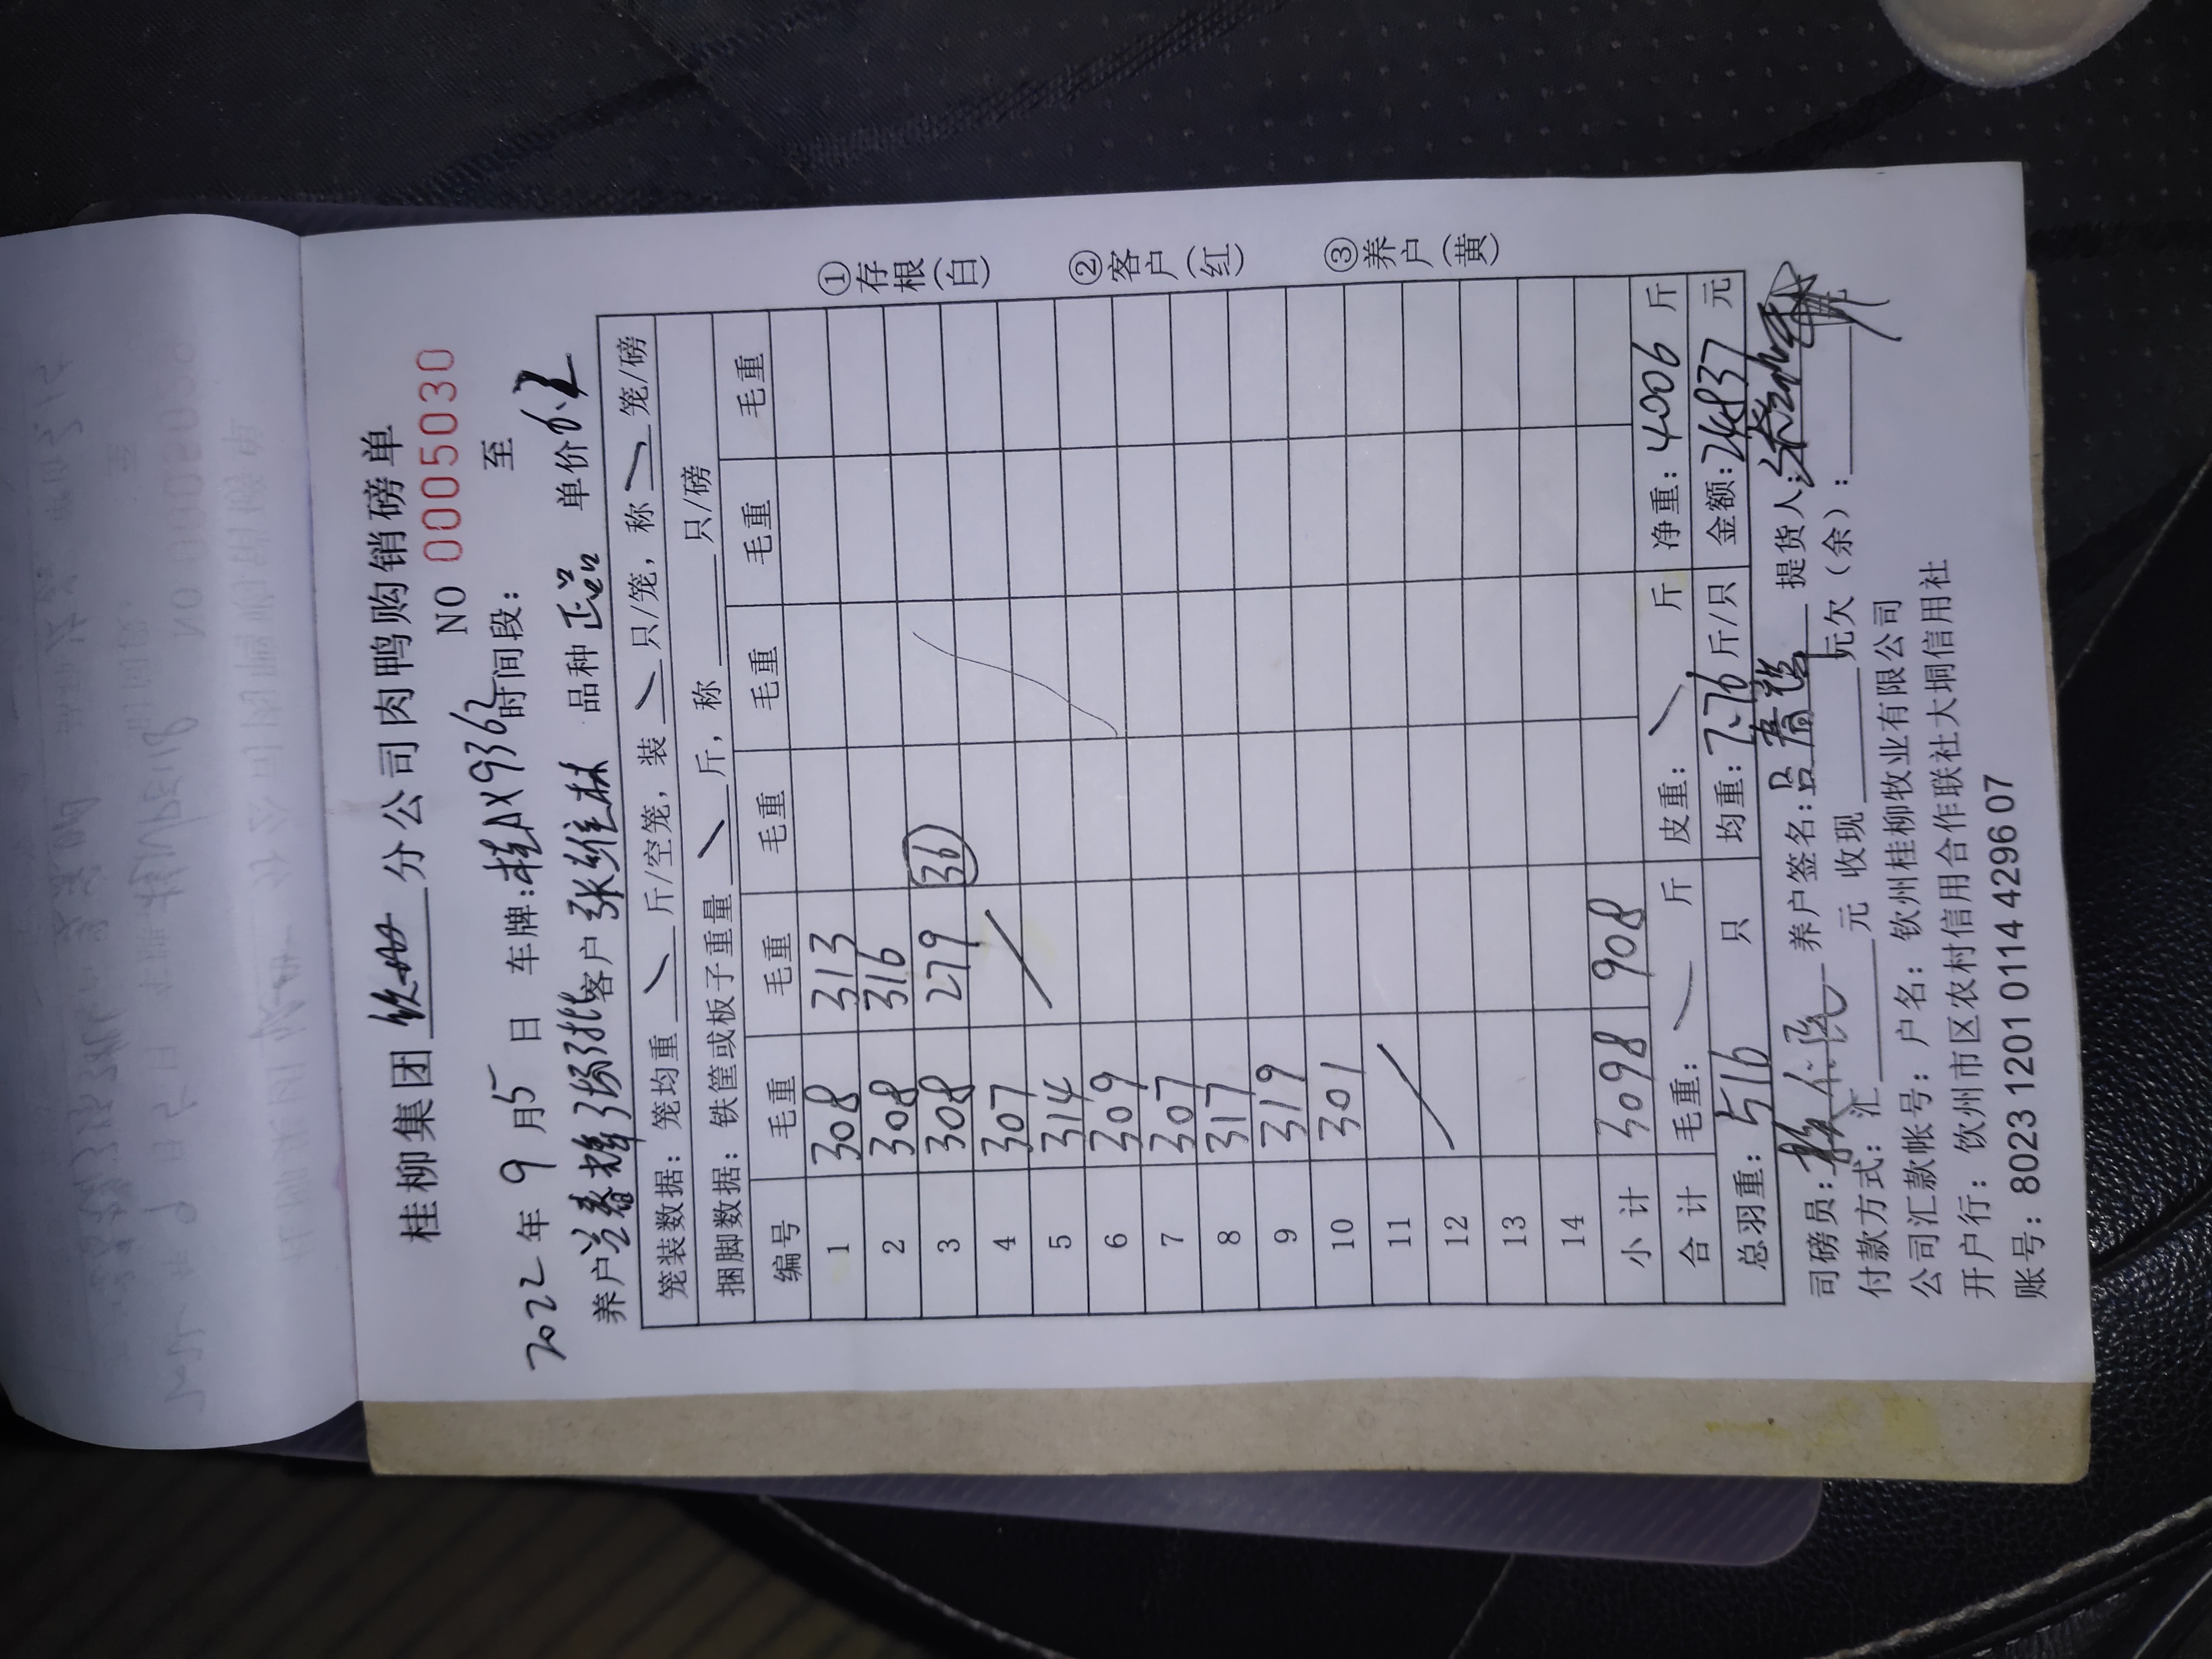 桂柳集团 钦州 分公司肉鸭购销磅单
NO 0005030
2022 年 9 月 5 日 车牌：桂AX9362 时间段： 至
养户 客户 张维林 品种 正品 单价 6.2
笼装数据：笼均重 斤/空笼，装 只/笼，称 笼/磅
捆脚数据：铁筐或板子重量 斤，称 只/磅
编号 毛重 毛重 毛重 毛重 毛重 毛重
1 308 313
2 308 316
3 308 279 36
4 307
5 314
6 309
7 307
8 317
9 319
10 301
11
12
13
14
小 计 3098 908
合 计 毛重： 斤 皮重： 斤 净重：4006 斤
总羽重：516 只 均重：7.76 斤/只 金额：24837 元
司磅员： 养户签名： 提货人：
付款方式：汇 元 收现 元欠（余）：
公司汇款帐号：户名：钦州桂柳牧业有限公司
开户行：钦州市区农村信用合作联社大垌信用社
账号：8023 1201 0114 4296 07
①存根(白)
②客户(红)
③养户(黄)